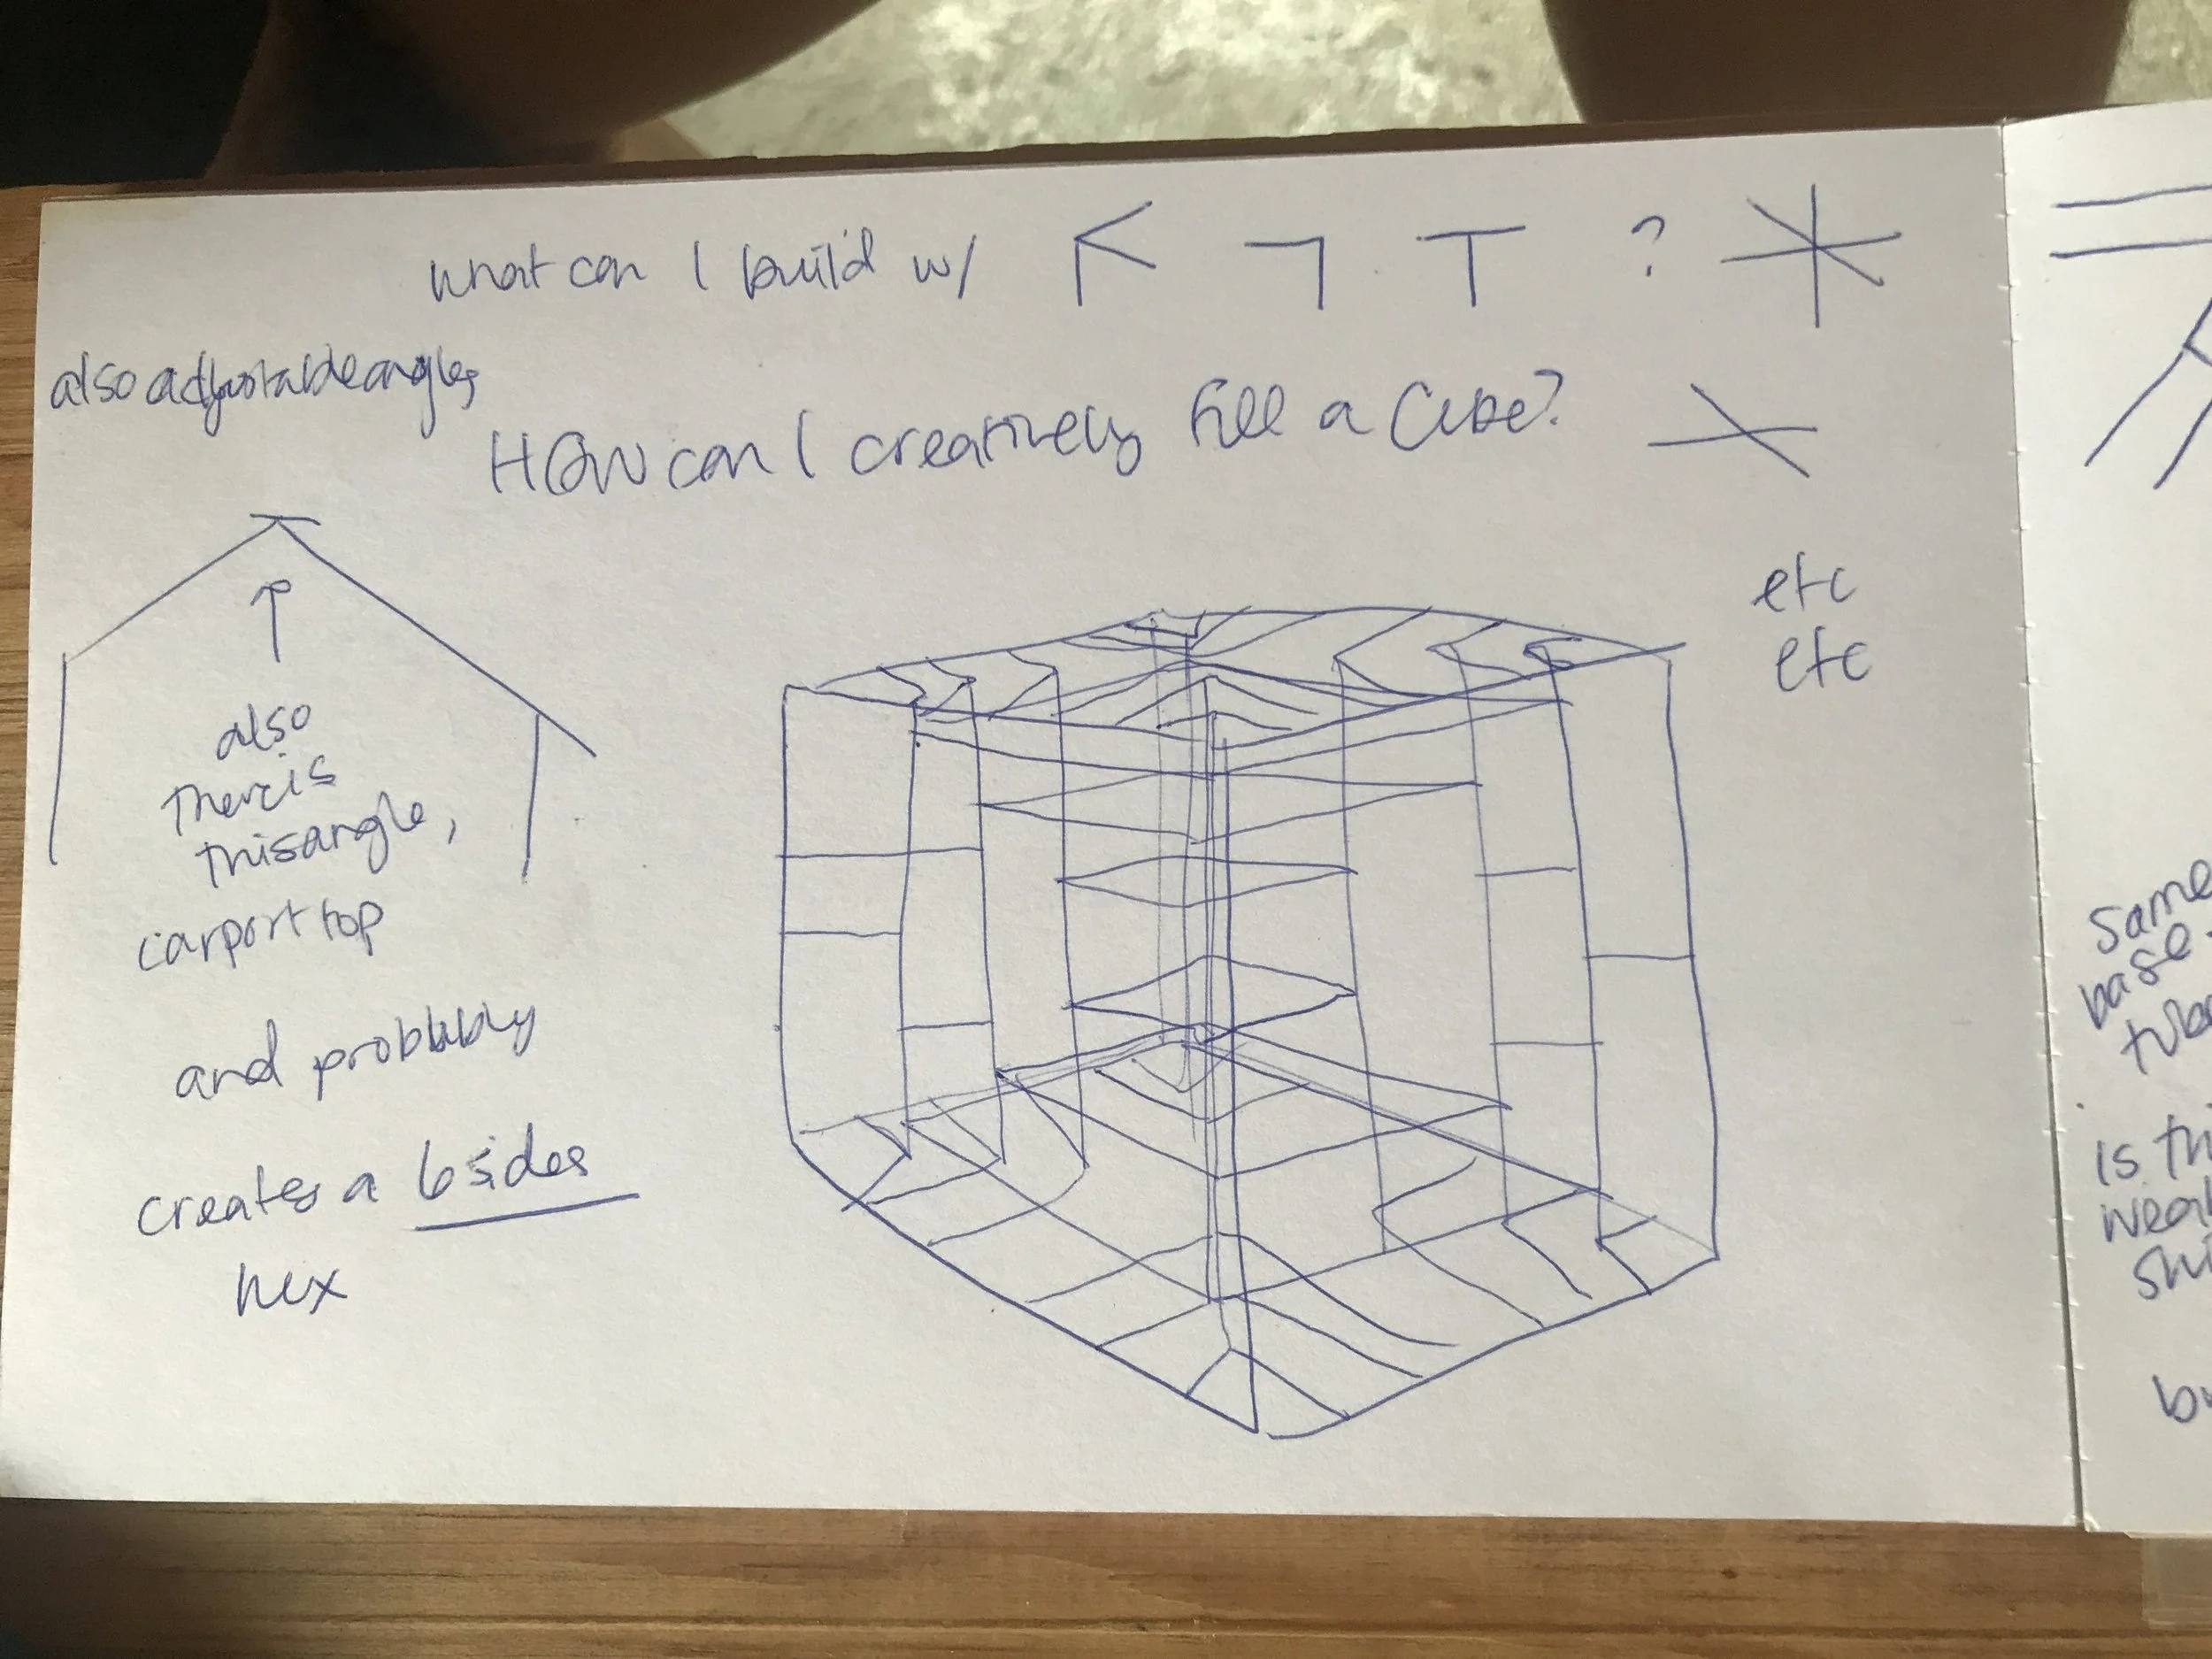 what can I build w/ ?
also adjustable angles
How can I creatively fill a Cube?
etc
etc
also
there is
this angle,
carport top
and probably
creates a 6 sides
hex
Same
base
is